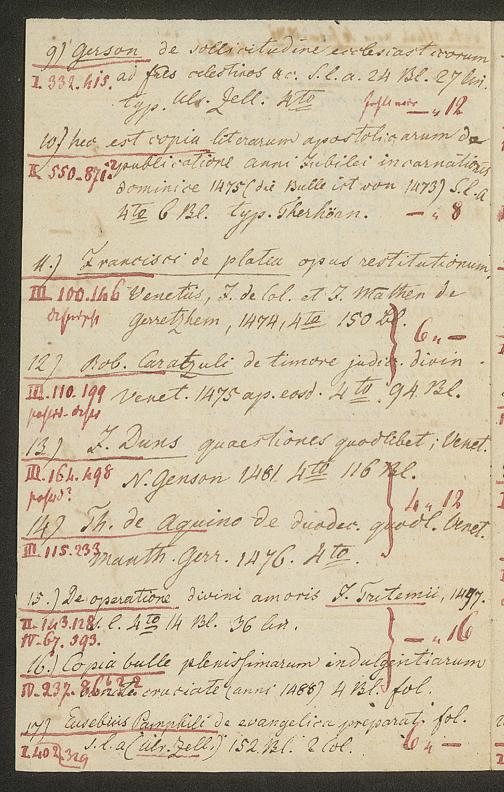 9) Gerson de sollicitudine ecclesiasticorum
I. 332. 415. ad fres celestinos &c. S. l. a. 24 Bl. 27 lin.
typ. Ulr. Zell. 4to — „ 12
10) hec est copia literarum apostolicarum de
II. 550. 871. publicatione anni Jubilei incarnationis
dominice 1475 (die Bulle ist von 1473) S. l. a
4to 6 Bl. typ. Therhörn. — „ 8
11.) Francisci de platea opus restitutionum,
III. 100. 146 Venetus, J. de Col. et J. Mathen de
Gerretzhem, 1474, 4to 150 Bl.
6 „ —
12) Rob. Caratzuli de timore judic. divin
III. 110. 199 Venet. 1475 ap. eosd. 4to 94 Bl.
13.) J. Duns quaestiones quodlibet, Venet.
III. 164. 498 N. Genson 1481 4to 116 Bl.
4 „ 12
14) Th. de Aquino de duodec. quodl. Venet.
III. 115. 233 Manth. Gerr. 1476. 4to.
15.) De operatione divini amoris J. Tritemii, 1497.
II. 143. 128 S. l. 4to 14 Bl. 36 lin.
IV. 67. 593. — „ 16
16) Copia bulle plenissimarum indulgentiarum
IV. 237. cruciate (anni 1488) 4 Bl. fol.
17) Eusebius Pamphili de evangelica preparati. fol.
I. 402. 329 S. l. a (Ulr. Zell.) 152 Bl. 2 Col. 6 „ —